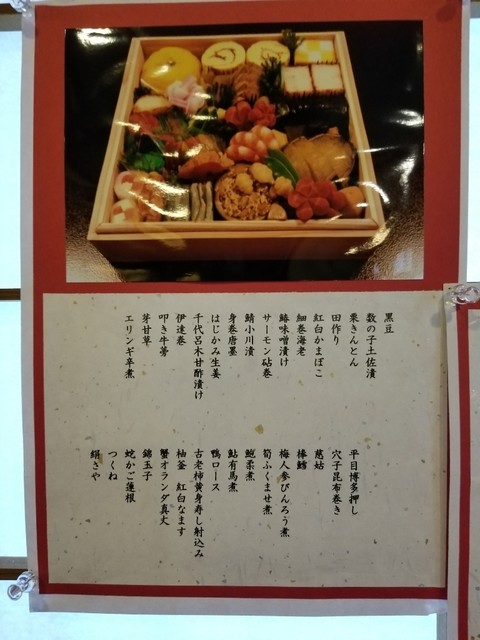 黒豆
数の子土佐漬
栗きんとん
田作り
紅白かまぼこ
細巻海老
鰆味噌漬け
サーモン砧巻
鯖小川漬
身巻唐墨
はじかみ生姜
千代呂木甘酢漬け
伊達巻
叩き牛蒡
芽甘草
エリンギ辛煮
平目博多押し
穴子昆布巻き
慈姑
棒鱈
梅人参びんろう煮
筍ふくませ煮
鮑柔煮
鮎有馬煮
鴨ロース
古老柿黄身寿し射込み
柚釜 紅白なます
蟹オランダ真丈
錦玉子
蛇かご蓮根
つくね
絹さや